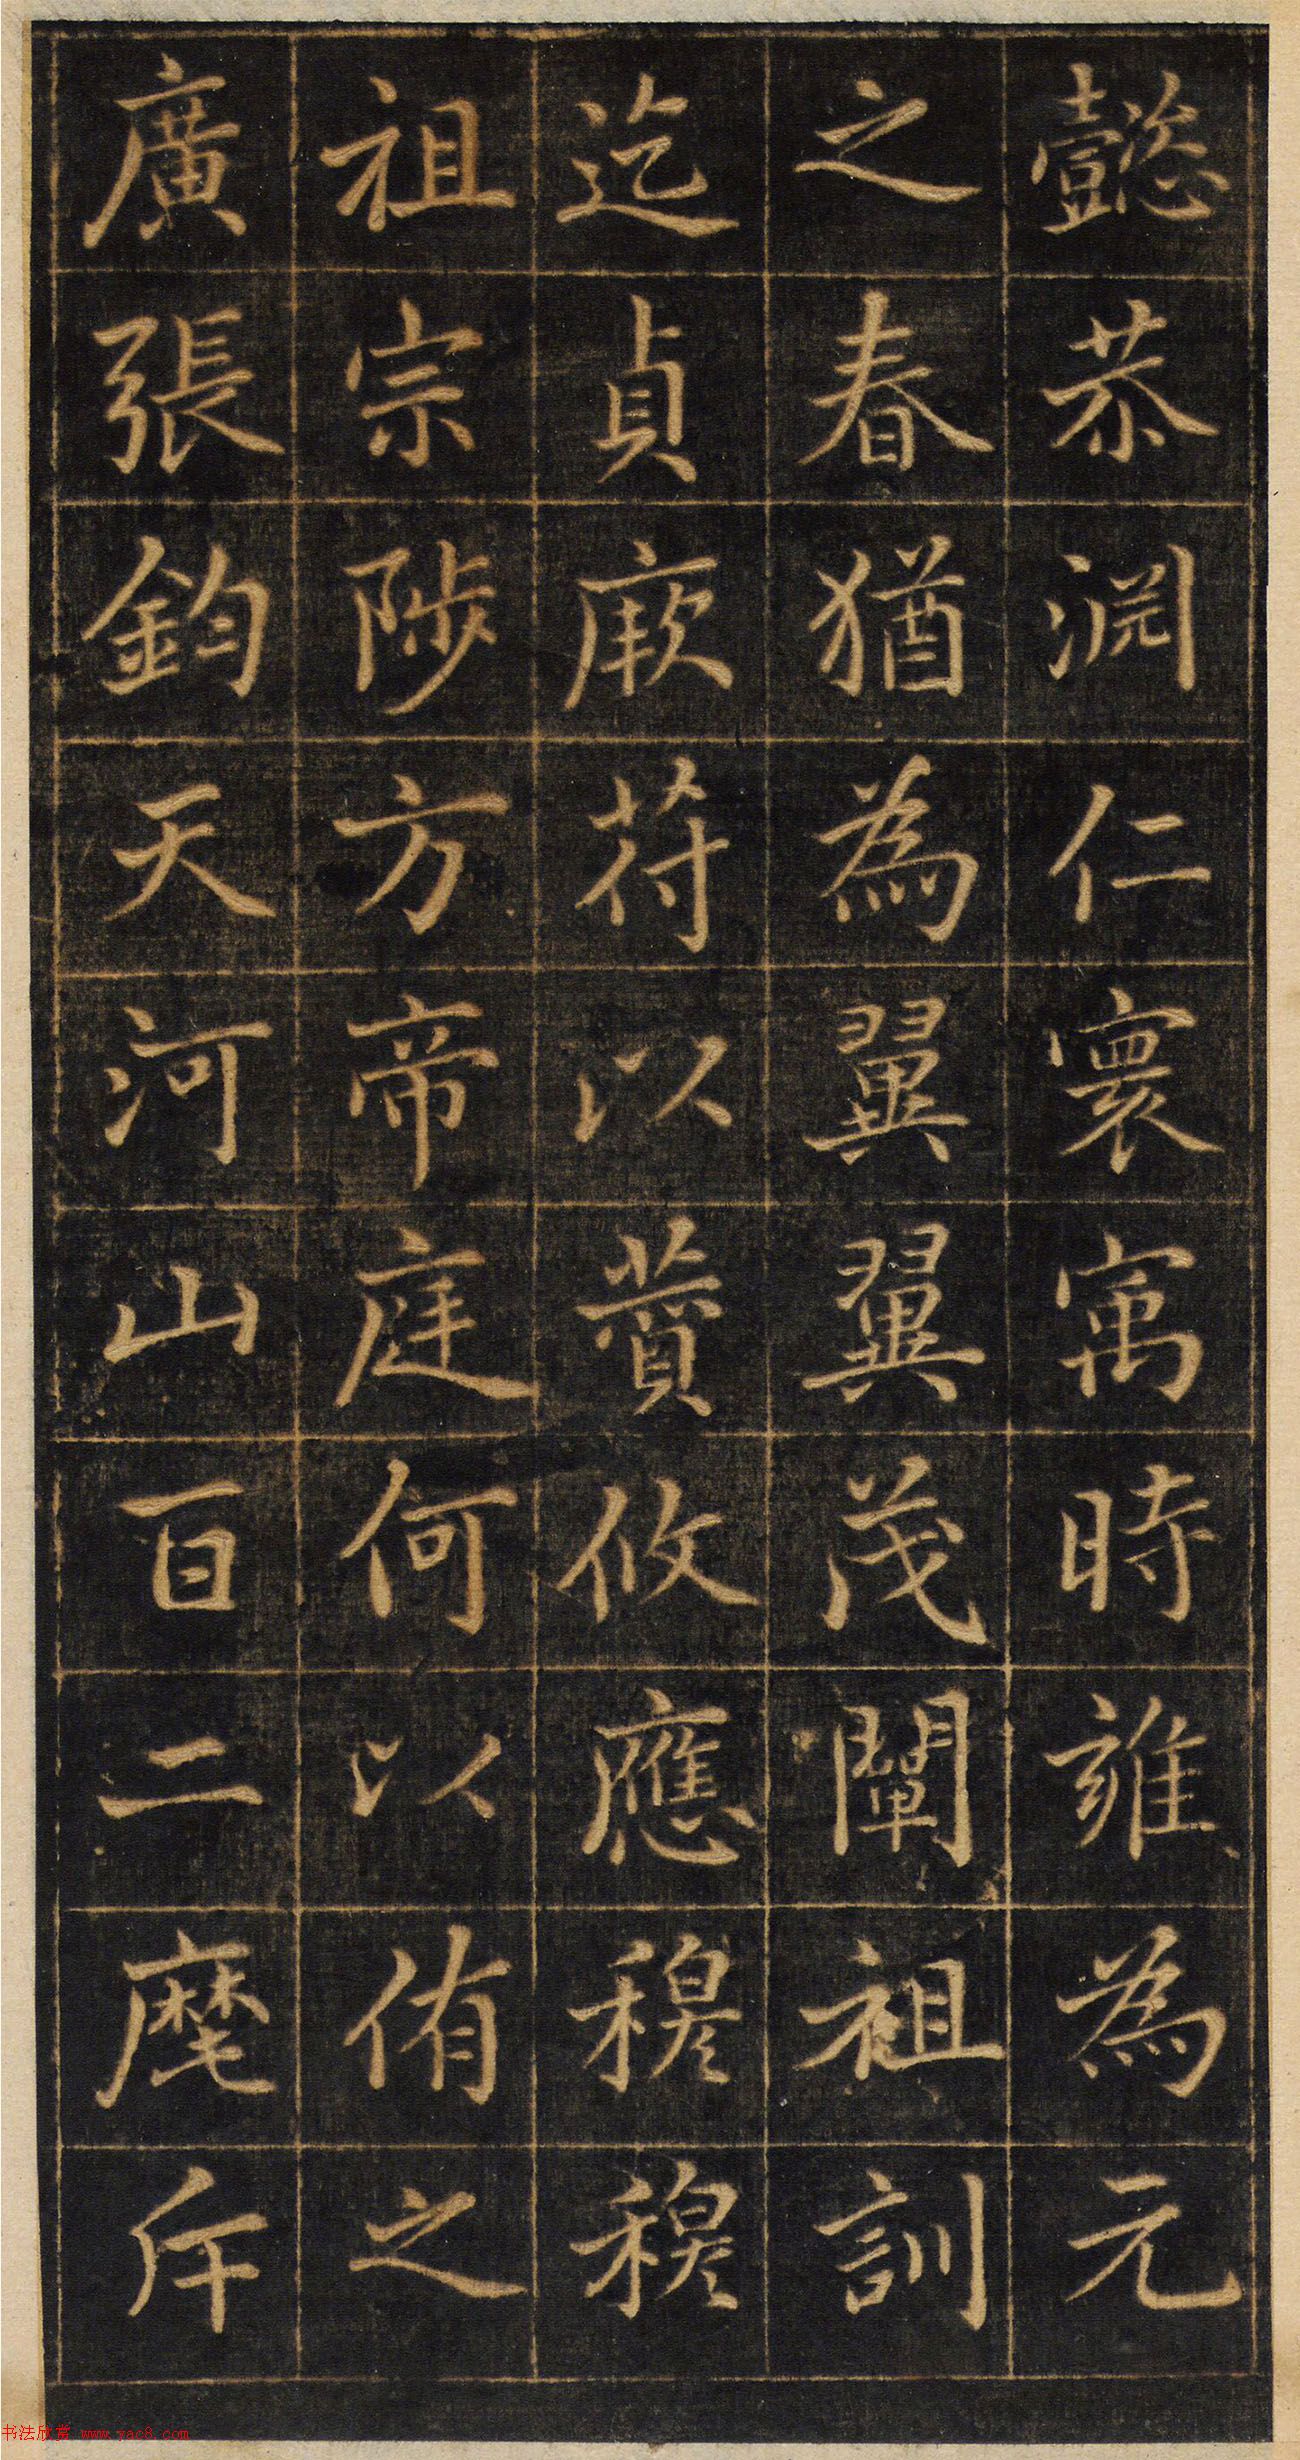 懿恭淵仁寰寓時雍為元
之春猶為翼翼茂闡祖訓
迄貞厥符以蕡攸應穆穆
祖宗陟方帝庭何以侑之
廣張鈞天河山百二麾斥
书法欣赏 www.yac8.com